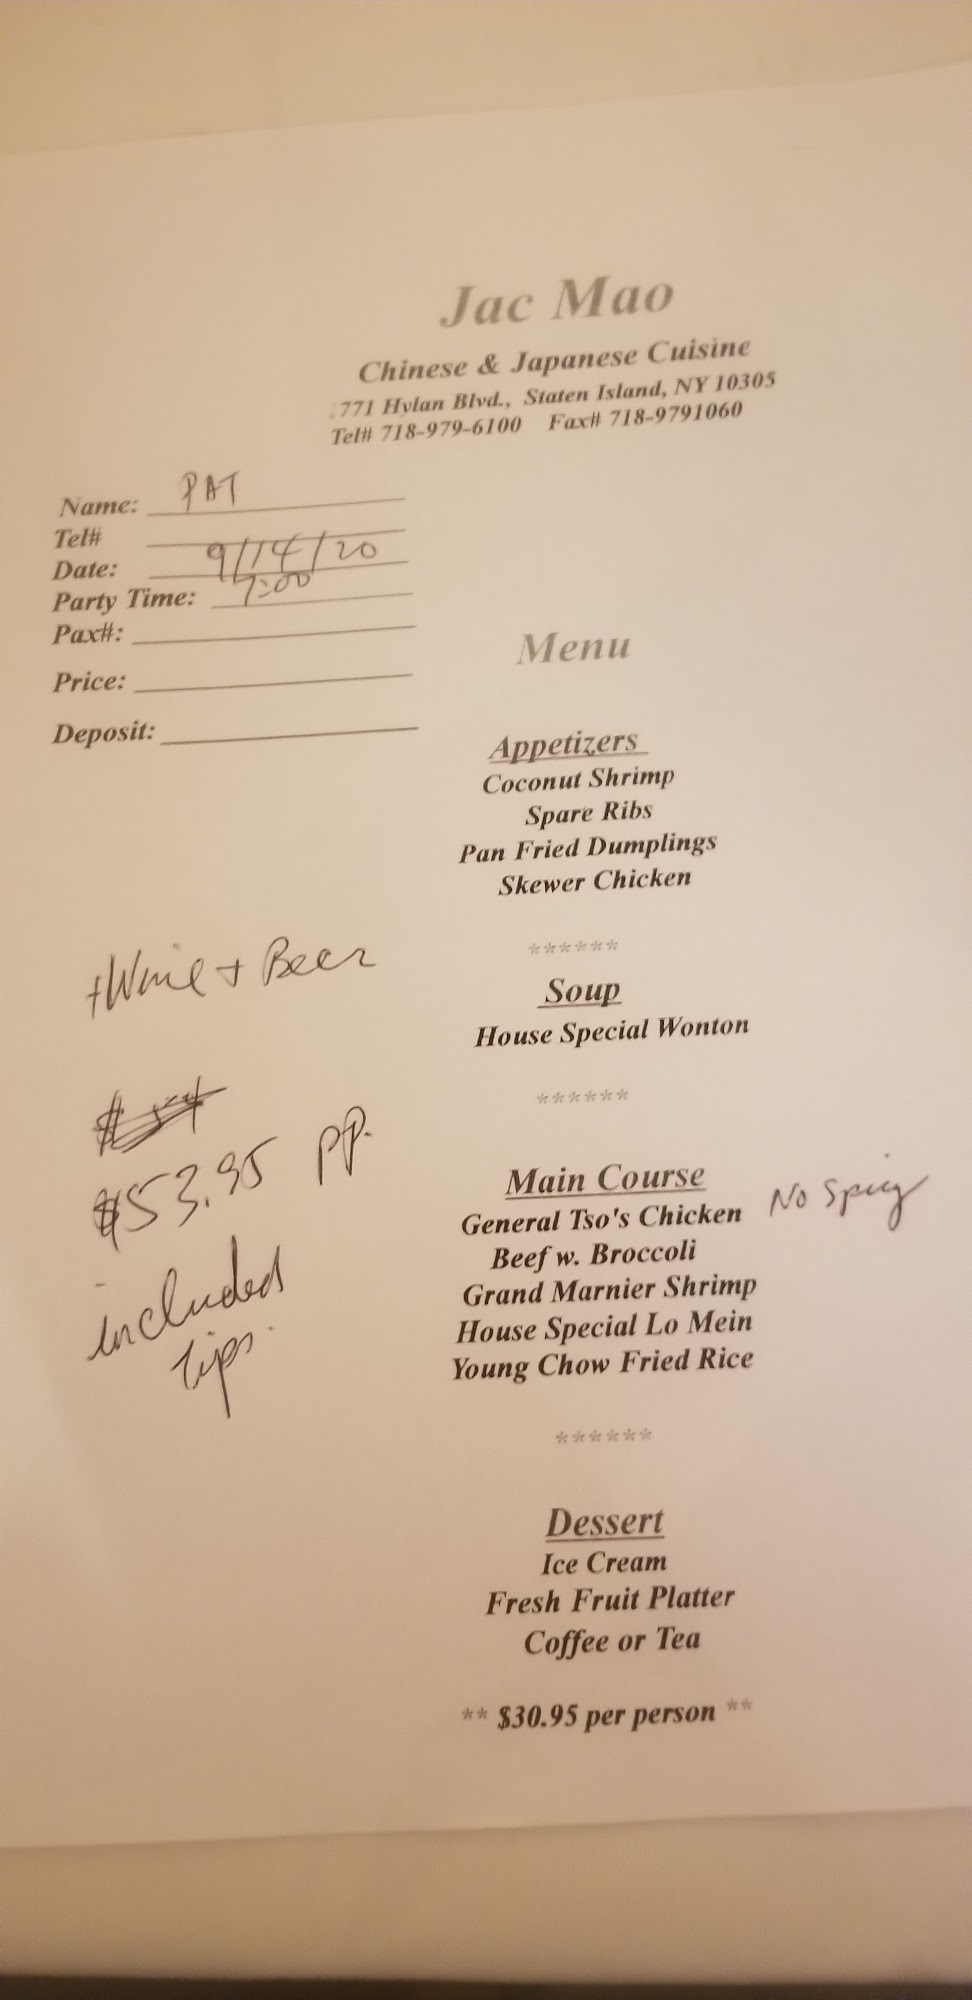 Jac Mao
Chinese & Japanese Cuisine
771 Hylan Blvd., Staten Island, NY 10305
Tel# 718-979-6100 Fax# 718-9791060
Name: PAT
Tel#
Date: 9/14/20
Party Time: 7:00
Pax#:
Price:
Deposit:
Menu
Appetizers
Coconut Shrimp
Spare Ribs
Pan Fried Dumplings
Skewer Chicken
+Wine + Beer
******
Soup
House Special Wonton
******
$53.95 PP.
included
tips.
Main Course
General Tso's Chicken No Spicy
Beef w. Broccoli
Grand Marnier Shrimp
House Special Lo Mein
Young Chow Fried Rice
******
Dessert
Ice Cream
Fresh Fruit Platter
Coffee or Tea
** $30.95 per person **